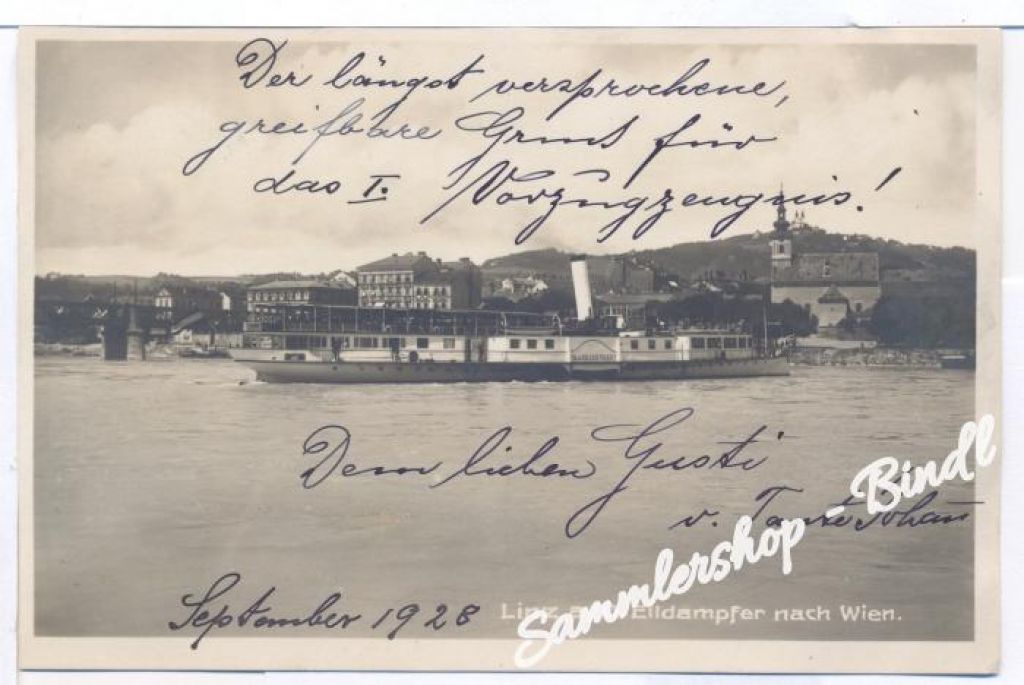 Der längst versprochene,
greifbare Gruß für
das I. Vorzugzeugnis!
Dem lieben Gusti
v. Tante
September 1928
Linz Eildampfer nach Wien.
Sammlershop - Bindl